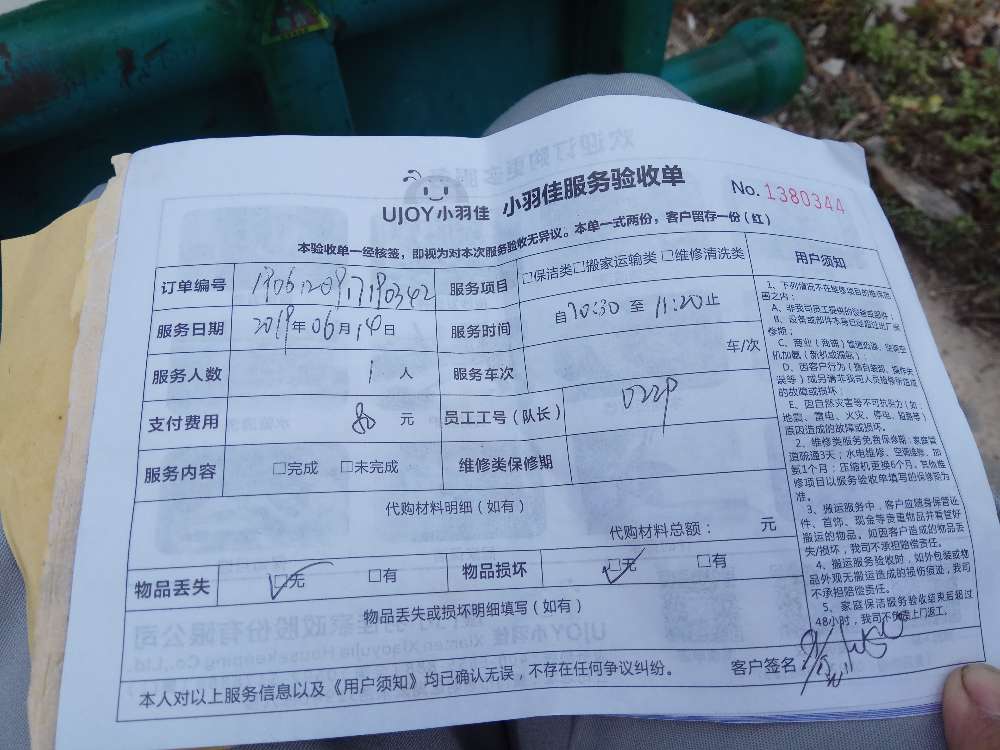 UJOY小羽佳 小羽佳服务验收单 No. 1380344
本验收单一经核签，即视为对本次服务验收无异议。本单一式两份，客户留存一份（红）
订单编号 服务项目 □保洁类□搬家运输类 □维修清洗类
服务日期 2019年06月14日 服务时间 自10:30 至 11:20止
服务人数 1 人 服务车次 车/次
支付费用 80 元 员工工号（队长）
服务内容 □完成 □未完成 维修类保修期
代购材料明细（如有）
代购材料总额： 元
物品丢失 □无 □有 物品损坏 □无 □有
物品丢失或损坏明细填写（如有）
本人对以上服务信息以及《用户须知》均已确认无误，不存在任何争议纠纷。 客户签名
用户须知
1、下列情况不在维修项目的维保范
围之内：
A、非我司员工提供的设备或部件；
B、设备或部件本身已经超过出厂保
修期；
C、商业（商铺）管道疏通、空调空
机加氨（新机或漏氨）；
D、因客户行为（擅自装卸、操作失
误等）或另请非我司人员维修所造成
的故障或损坏
E、因自然灾害等不可抗热力（如：
地震、雷电、火灾、停电、短路等）
原因造成的故障或损坏。
2、维修类服务免费保修期：家庭管
道疏通3天；水电维修、空调维修、加
氨1个月；压缩机更换6个月，其他维
修项目以服务验收单填写的保修期为
准。
3、搬运服务中，客户应随身保管证
件、首饰、现金等贵重物品并看管好
搬运的物品。如因客户造成的物品丢
失/损坏，我司不承担赔偿责任。
4、搬运服务验收时，如外包装或物
品外观无搬运造成的损伤痕迹，我司
不承担赔偿责任。
5、家庭保洁服务验收结束后超过
48小时，我司不负责上门返工。